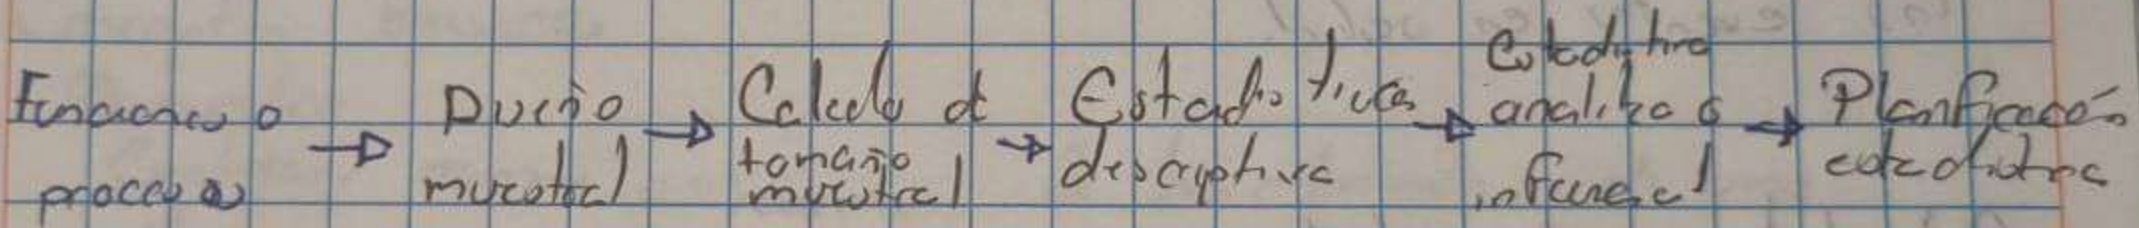 o
procesos
→ Diseño
muestral
→ Calculo de
tamaño
muestral
→ Estadistica
descriptiva
→ Estadistica
analitica o
inferencial
→ Planificación
estadistica